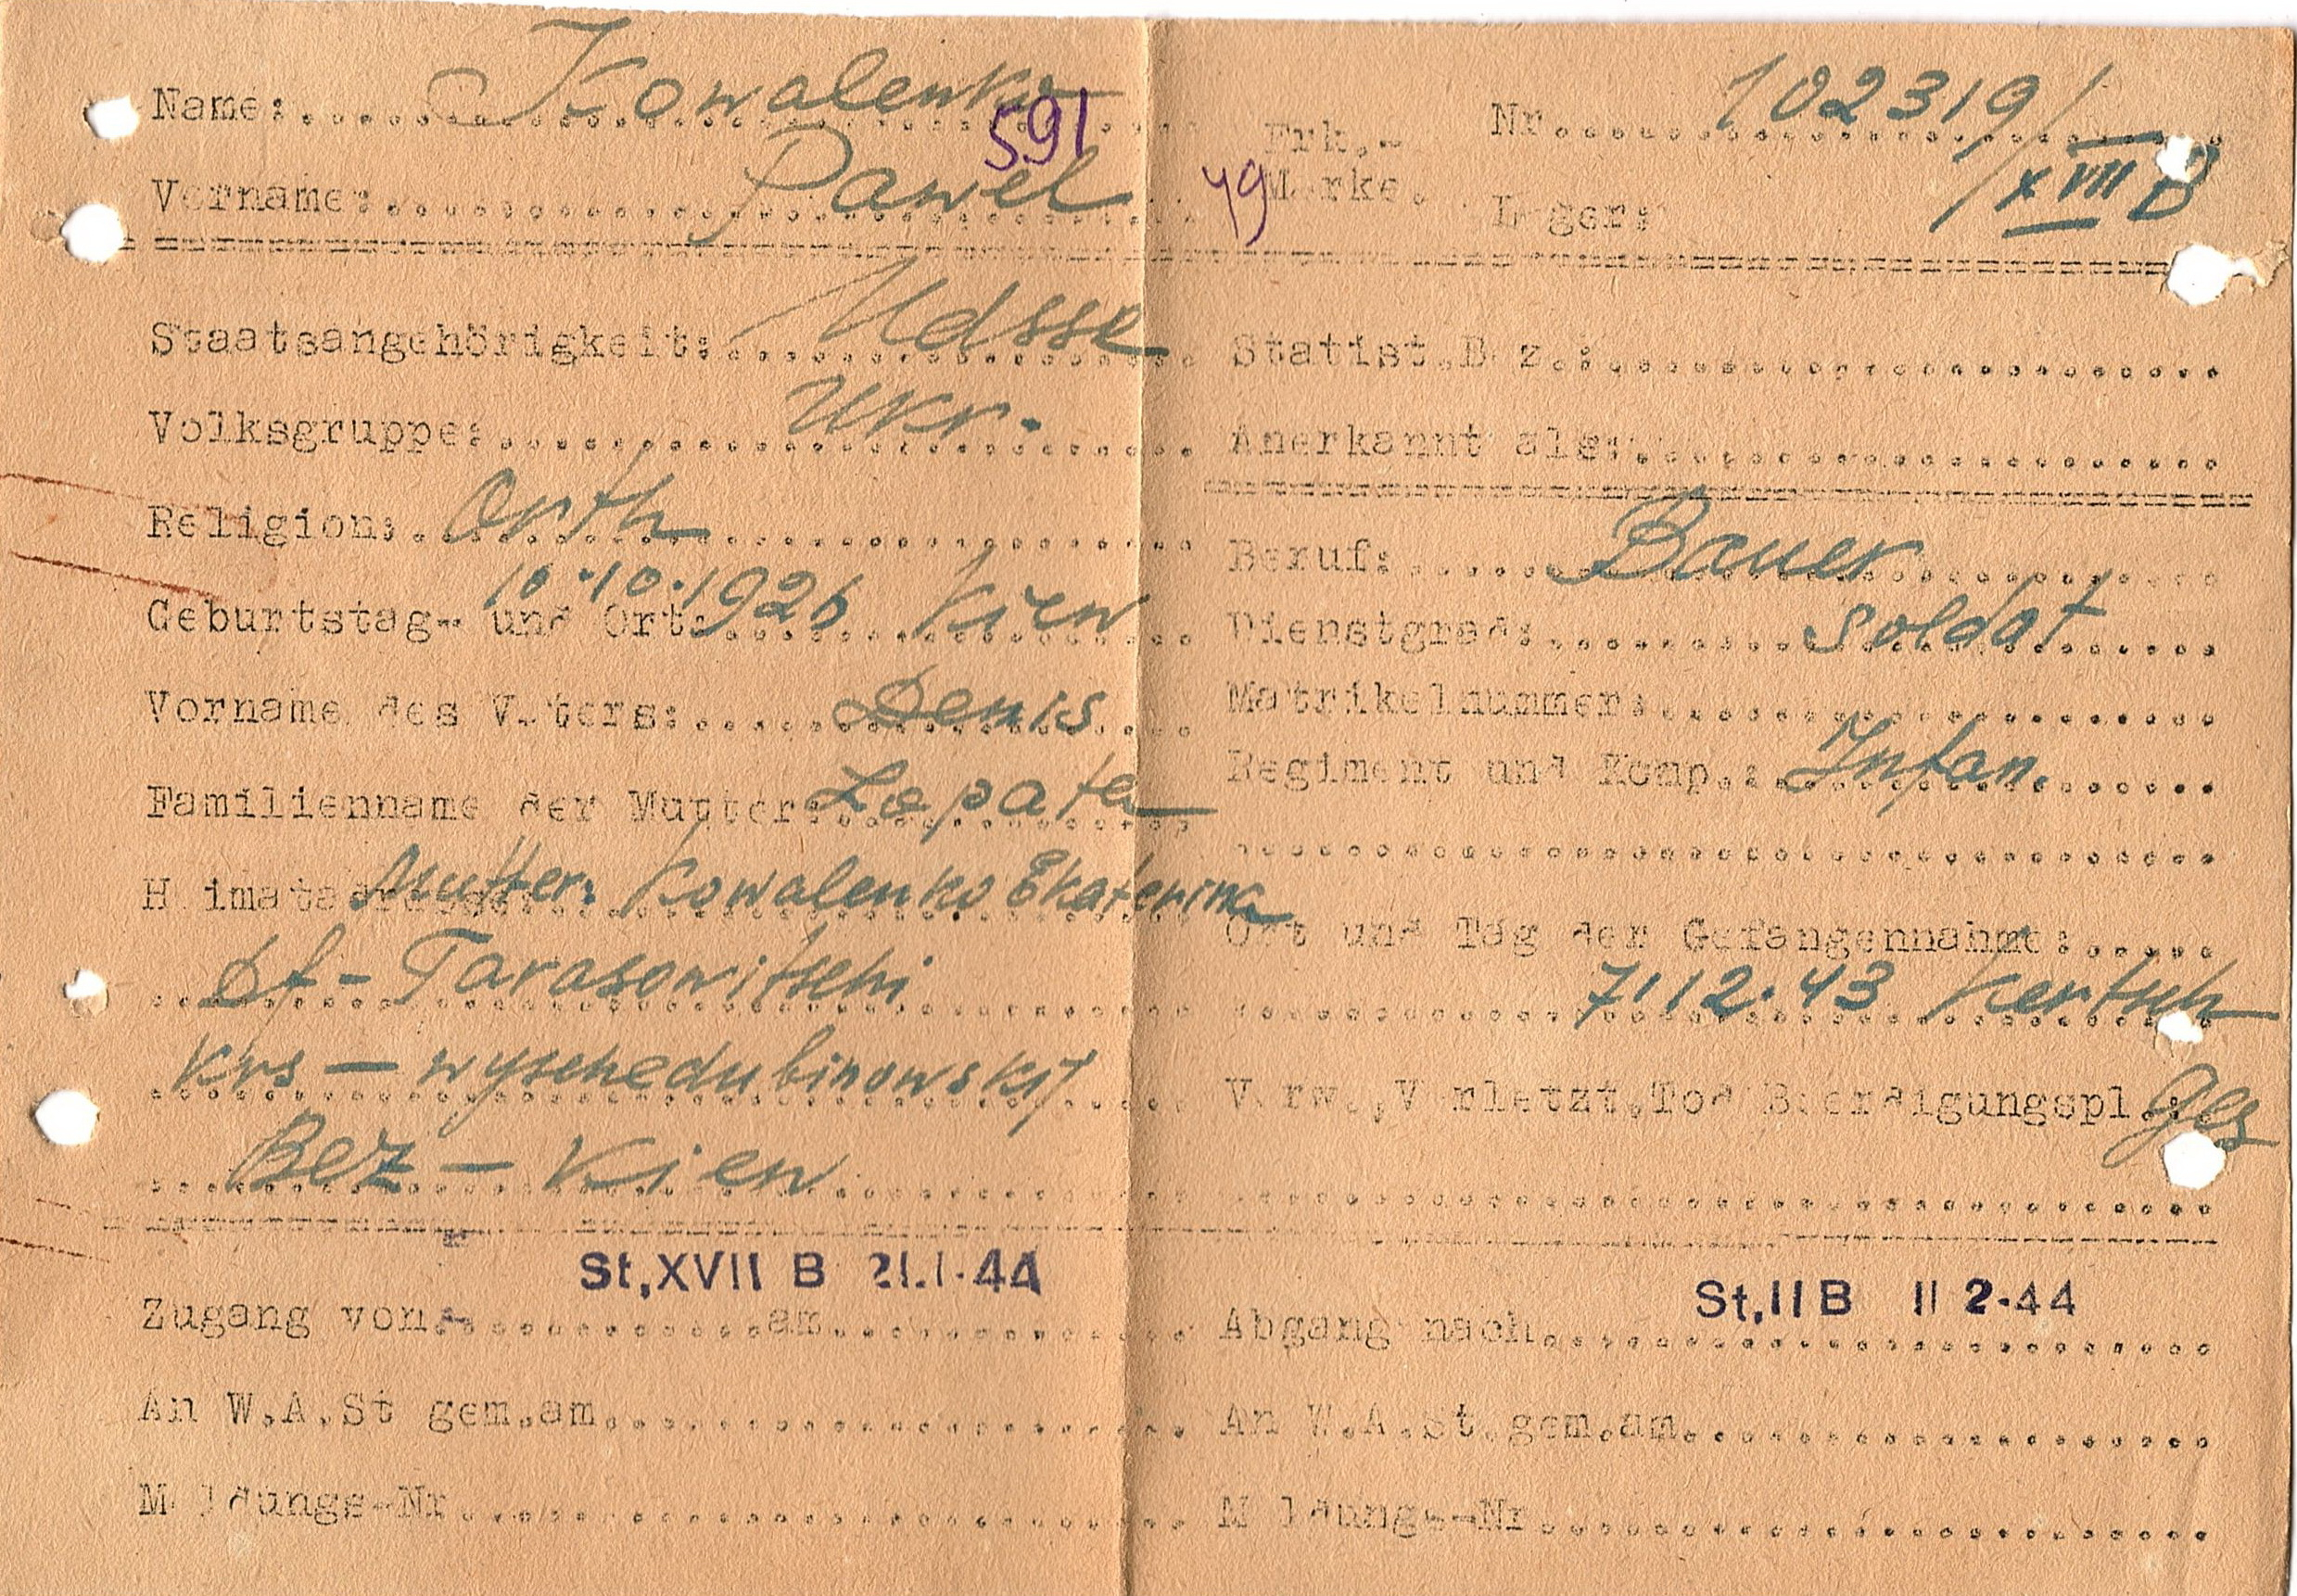 Name: Kowalenko
591
Vorname: Pawel
49
Erk.-
Marke.
Nr. 102319/
Lager: XVII B
Staatsangehörigkeit: UdSSR
Volksgruppe: Ukr.
Religion: Orth
Geburtstag- und Ort: 10.10.1926 Kiew
Vorname des Vaters: Denis
Familienname der Mutter: Lopata
Heimatadresse: Mutter: Kowalenko Ekaterina
Df - Tarasowitschi
Krs - Wyschedubinowskij
Bez - Kiew
Statist.Bez.:
Anerkannt als:
Beruf: Bauer
Dienstgrad: Soldat
Matrikelnummer:
Regiment und Komp.: Infan.
Ort und Tag der Gefangennahme:
7.12.43 Kertsch
Verw.,Verletzt,Tod Beerdigungspl.: Ges
St,XVII B 21.1.44
Zugang von am
An W.A.St gem.am
Meldungs-Nr
St,II B 11 2.44
Abgang nach
An W.A.St gem.am
Meldungs-Nr